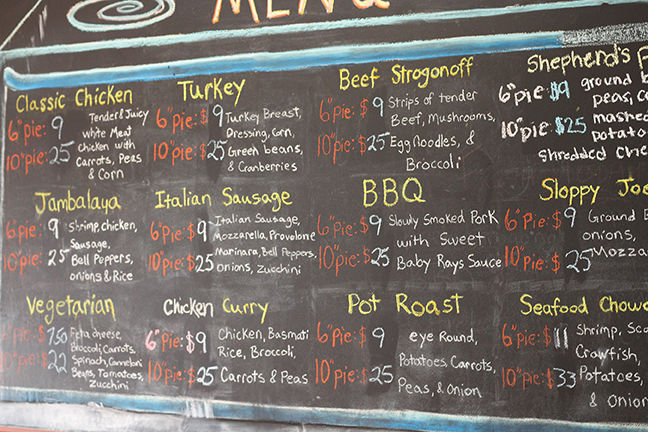 MENU
Classic Chicken
6" pie: 9
10" pie: 25
Tender & Juicy
White Meat
Chicken with
Carrots, Peas
& Corn
Turkey
6" pie: $9
10" pie: $25
Turkey Breast,
Dressing, Corn,
Green beans,
& Cranberries
Beef Strogonoff
6" pie: $9
10" pie: $25
Strips of tender
Beef, Mushrooms,
Egg Noodles, &
Broccoli
Shepherd's
6" pie: $9
10" pie: $25
ground
peas,
mashed
shredded
Jambalaya
6" pie: 9
10" pie: 25
Shrimp, chicken,
Sausage,
Bell Peppers,
onions & Rice
Italian Sausage
6" pie: $9
10" pie: $25
Italian Sausage,
Mozzarella, Provelone
Marinara, Bell Peppers,
onions, zucchini
BBQ
6" pie: $9
10" pie: $25
Slowly Smoked Pork
with Sweet
Baby Rays Sauce
Sloppy
6" pie: $9
10" pie: $25
Ground
onions,
Vegetarian
$7.50
10" pie: $22
Feta cheese,
Broccoli, Carrots,
Spinach,
Beans, Tomatoes,
Zucchini
Chicken Curry
6" pie: $9
10" pie: $25
Chicken, Basmati
Rice, Broccoli,
Carrots & Peas
Pot Roast
6" pie: $9
10" pie: $25
eye Round,
Potatoes, Carrots,
Peas, & Onion
Seafood
6" pie: $11
10" pie: $33
Shrimp,
Crawfish,
Potatoes,
& Onion